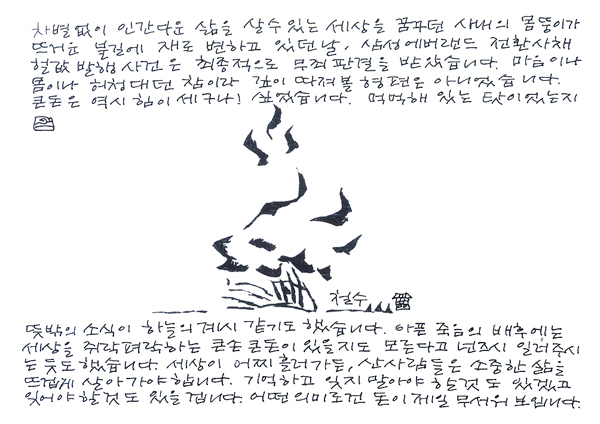 차별없이 인간다운 삶을 살수있는 세상을 꿈꾸던 사내의 몸뚱이가
뜨거운 불길에 재로 변하고 있던날, 삼성에버랜드 전환사채
헐값 발행 사건은 최종적으로 무죄판결을 받았습니다. 마음이나
몸이나 허청대던 참이라 깊이 따져볼 형편은 아니었습니다.
큰돈은 역시 힘이 세구나! 싶었습니다. 먹먹해 있는 탓이었는지
철수
뜻밖의 소식이 하늘의 계시 같기도 했습니다. 아픈 죽음의 배후에는
세상을 쥐락펴락하는 큰손 큰돈이 있을지도 모른다고 넌즈시 일러주시
는 듯도했습니다. 세상이 어찌 흘러가든, 산사람들은 소중한 삶을
뜨겁게 살아가야 합니다. 기억하고 잊지 말아야 할것도 있겠고
잊어야 할것도 있을 겁니다. 어떤 의미로건 돈이 제일 무서워 보입니다.